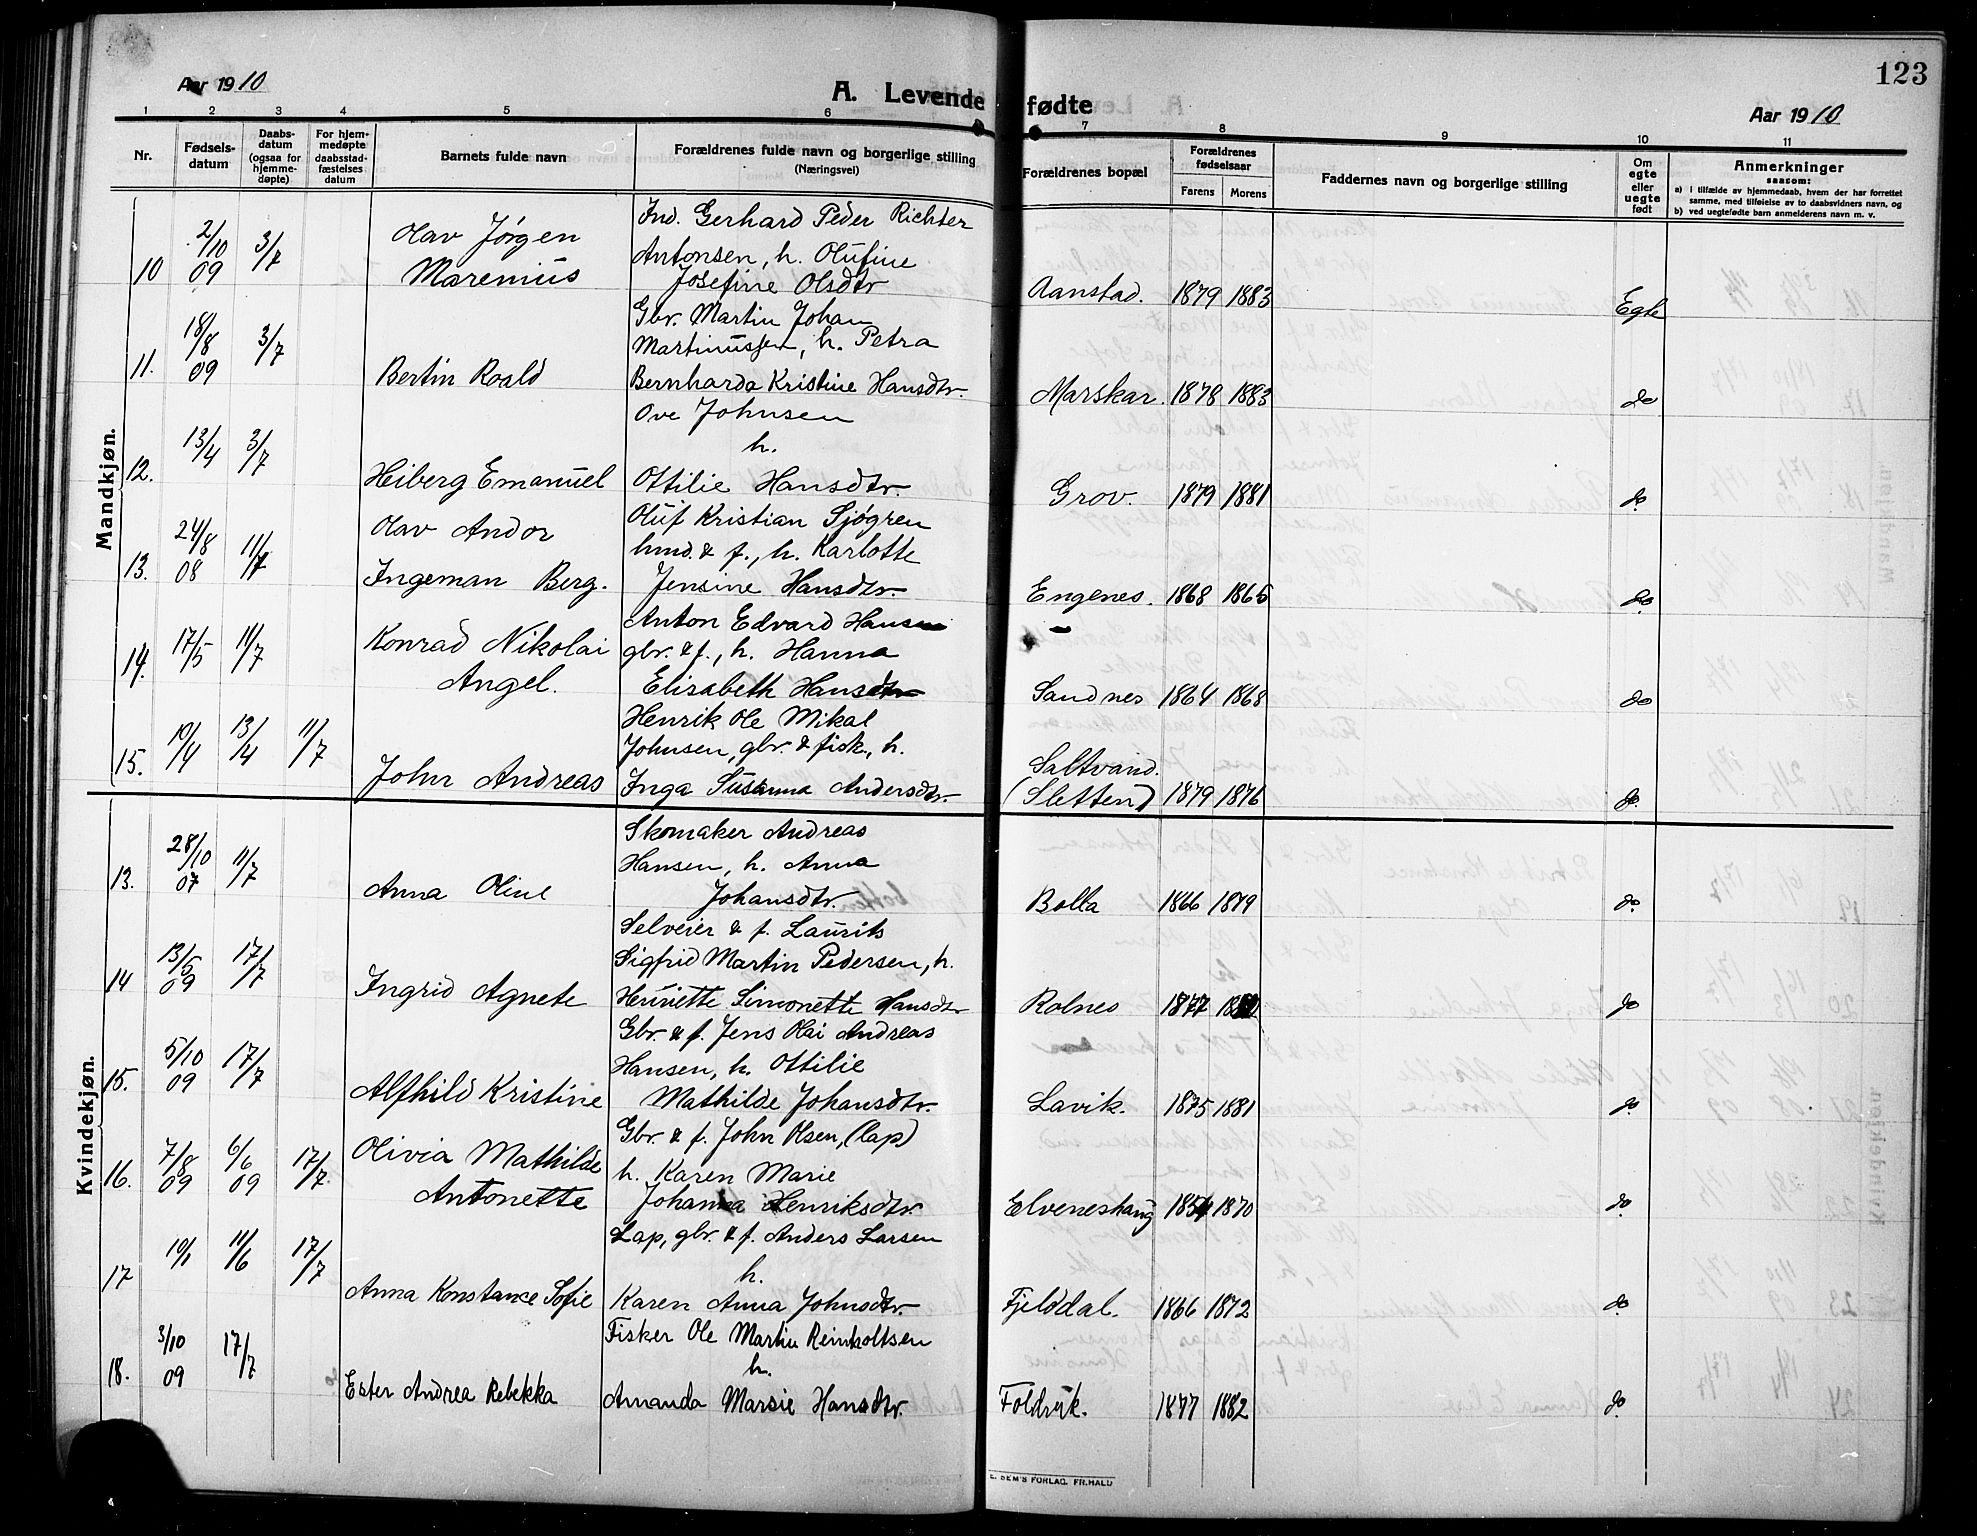 123
Aar 1910
A. Levendefødte
Aar 1910
1 2 3 4 5 6 7 8 9 10 11
Nr.
Fødsels-
datum
Daabs-
datum
(ogsaa for
hjemme-
døpte)
For hjem-
medøpte
daabsstad-
fæstelses
datum
Barnets fulde navn
Forældrenes fulde navn og borgerlige stilling
(Næringsvei)
Forældrenes bopæl
Forældrenes
fødselsaar
Farens Morens
Faddernes navn og borgerlige stilling
Om
egte
eller
uegte
født
Anmerkninger
saasom:
a) i tilfælde av hjemmedaab, hvem der har forrettet
samme, med tilføielse av to daabsvidners navn, og
b) ved uegtefødte barn anmelderens navn m. v.
Mandkjøn.
10 2/10 09 3/7 Olav Jørgen
Maremius
Ind. Gerhard Peder Richter
Antonsen, h. Olufine
Josefine Olsdtr
Aanstad. 1879 1883 Egte
11. 18/8 09 3/7 Bertin Roald
Gbr. Martin Johan
Martinussen, h. Petra
Bernharda Kristine Hansdtr.
Marskar. 1878 1883 do
12. 13/4 3/7 Heiberg Emanuel
Ove Johnsen
h.
Ottilie Hansdtr.
Grov. 1879 1881 do
13. 24/8 08 11/7 Olav Andor
Ingeman Berg.
Oluf Kristian Sjøgren
hmd. & f., h. Karlotte
Jensine Hansdtr.
Engenes. 1868 1865 do
14. 17/5 11/7 Konrad Nikolai
Angel.
Anton Edvard Hansen
gbr. & f., h. Hanna
Elisabeth Hansdtr
Sandnes 1864 1868 do
15. 10/4 13/4 11/7 John Andreas
Henrik Ole Mikal
Johnsen, gbr. & fisk., h.
Inga Susanna Andersdtr.
Saltvand.
(Sletten) 1879 1876 do.
Kvindekjøn.
13. 28/10 07 11/7 Anna Oline
Skomaker Andreas
Hansen, h. Anna
Johansdtr.
Bolla 1866 1879 do.
14 13/5 09 17/7 Ingrid Agnete
Selveier & f. Laurits
Sigfrid Martin Pedersen, h.
Henriette Simonette Hansdtr
Rolnes 1877 do
15. 5/10 09 17/7 Alfhild Kristine
Gbr. & f. Jens Olai Andreas
Hansen, h. Ottilie
Mathilde Johansdtr.
Lavik. 1875 1881 do
16. 7/8 09 6/6 09 17/7. Olivia Mathilde
Antonette
Gbr. & f. John Olsen, (lap)
h. Karen Marie
Johanna Henriksdtr.
Elveneshaug 1854 1870 do.
17 10/1 11/6 17/7 Anna Konstance Sofie
Lap, gbr. & f. Anders Larsen
h.
Karen Anna Johnsdtr.
Fjelddal. 1866 1872 do
18. 3/10 09 17/7 Ester Andrea Rebekka
Fisker Ole Martin Reinholtsen
h.
Amanda Marsie Hansdtr.
Foldvik. 1877 1882 do.
E. SEM'S FORLAG. FR.HALD